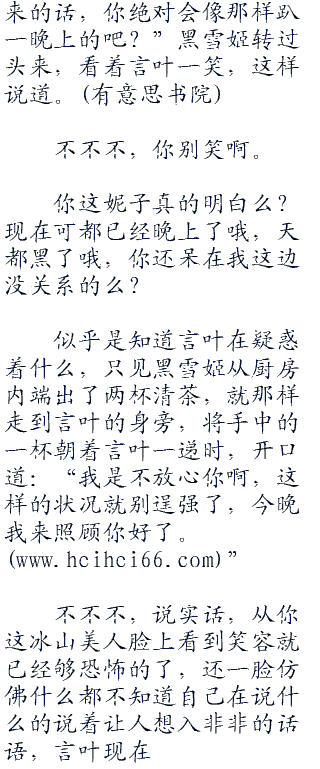 来的话，你绝对会像那样趴
一晚上的吧？”黑雪姬转过
头来，看着言叶一笑，这样
说道。(有意思书院)
不不不，你别笑啊。
你这妮子真的明白么？
现在可都已经晚上了哦，天
都黑了哦，你还呆在我这边
没关系的么？
似乎是知道言叶在疑惑
着什么，只见黑雪姬从厨房
内端出了两杯清茶，就那样
走到言叶的身旁，将手中的
一杯朝着言叶一递时，开口
道：“我是不放心你啊，这
样的状况就别逞强了，今晚
我来照顾你好了。
(www.hcihci66.com)”
不不不，说实话，从你
这冰山美人脸上看到笑容就
已经够恐怖的了，还一脸仿
佛什么都不知道自己在说什
么的说着让人想入非非的话
语，言叶现在